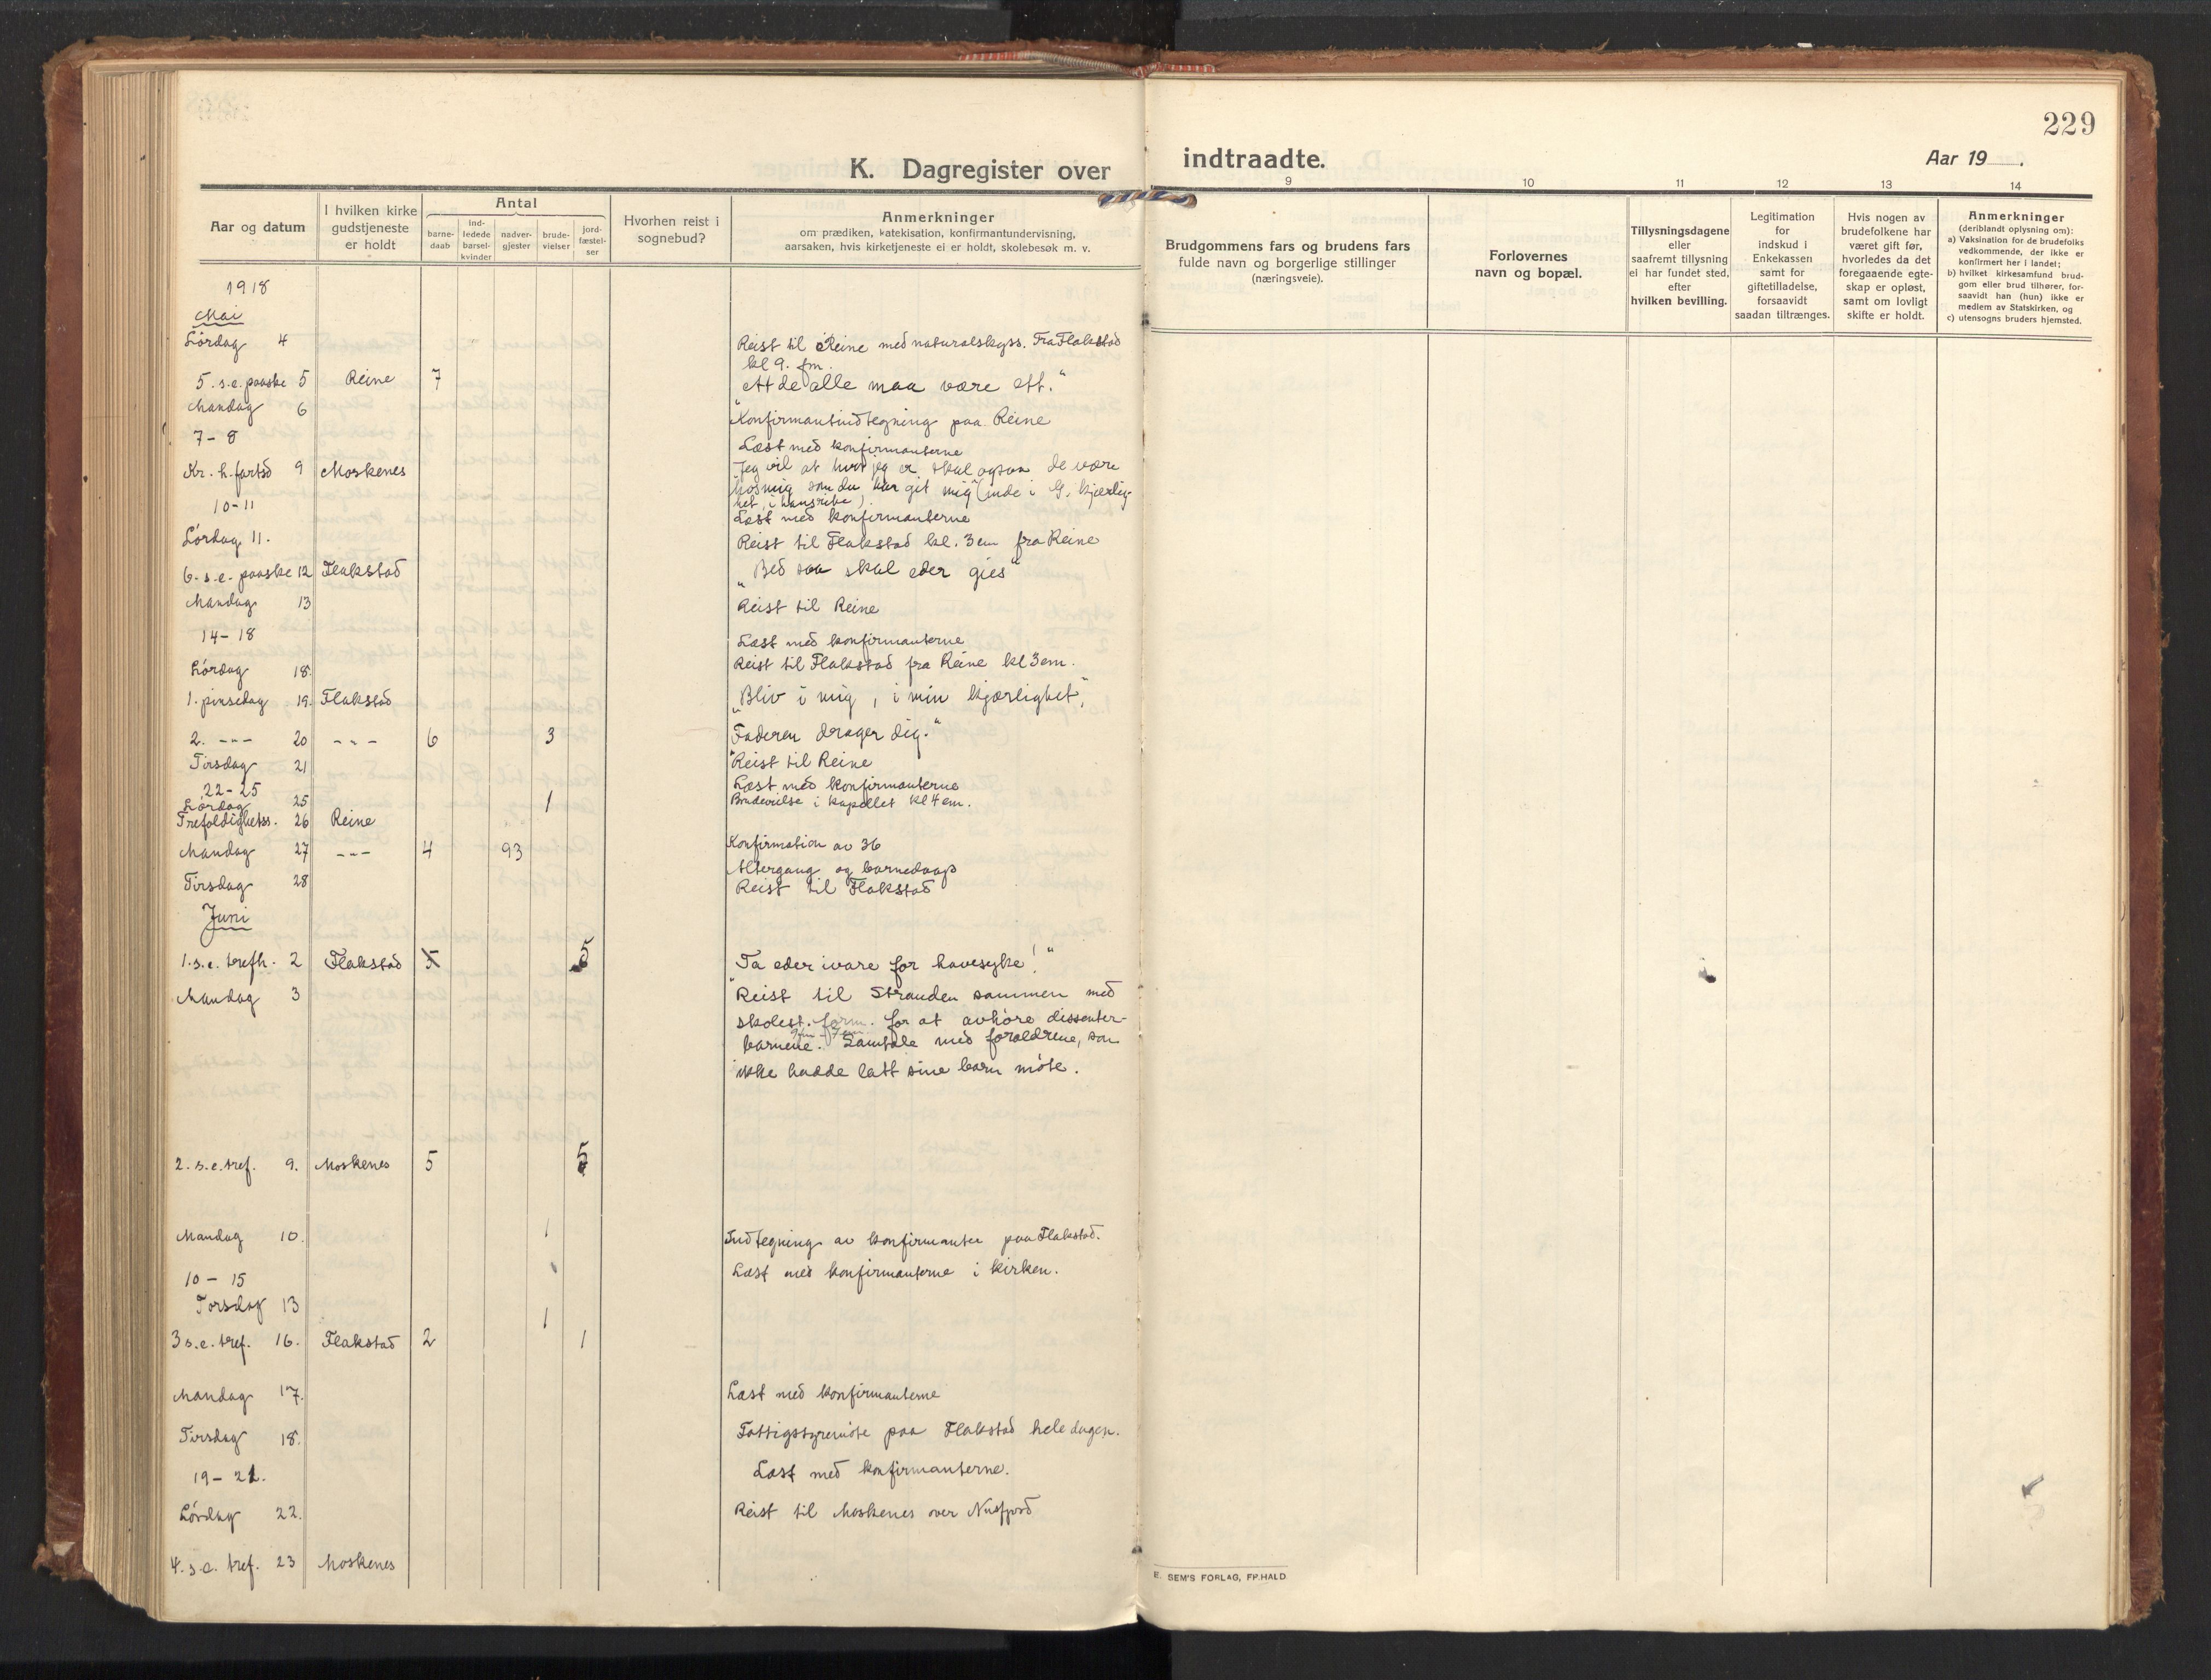 229
K. Dagregister over
indtraadte.
Aar 19 .
Aar og datum
I hvilken kirke gudstjeneste er holdt
Antal
barne-daab
ind-ledede barsel-kvinder
nadver-gjester
brude-vielser
jord-fæstel-ser
Hvorhen reist i sognebud?
Anmerkninger
om prædiken, katekisation, konfirmantundervisning,
aarsaken, hvis kirketjeneste ei er holdt, skolebesøk m. v.
9
Brudgommens fars og brudens fars
fulde navn og borgerlige stillinger
(næringsveie).
10
Forlovernes
navn og bopæl.
11
Tillysningsdagene
eller
saafremt tillysning
ei har fundet sted,
efter
hvilken bevilling.
12
Legitimation
for
indskud i
Enkekassen
samt for
giftetilladelse,
forsaavidt
saadan tiltrænges.
13
Hvis nogen av
brudefolkene har
været gift før,
hvorledes da det
foregaaende egte-
skap er opløst,
samt om lovligt
skifte er holdt.
14
Anmerkninger
(deriblandt oplysning om):
a) Vaksination for de brudefolks
vedkommende, der ikke er
konfirmert her i landet;
b) hvilket kirkesamfund brud-
gom eller brud tilhører, for-
saavidt han (hun) ikke er
medlem av Statskirken, og
c) utensogns bruders hjemsted.
1918
Mai
Lørdag 4 Reist til Reine med naturalskyss. Fra Flakstad
kl 9. fm.
5. s.e. paaske 5 Reine 7 "At de alle maa være ett."
Mandag 6 Konfirmantindtegning paa Reine
7-8 Læst med konfirmanterne
Kr. h. fartsd 9 Moskenes "Jeg vil at hvor jeg er skal ogsaa de være
hos mig som du har git mig" (inde i G. kjærlig-
het, i hans rike).
10-11 Læst med konfirmanterne
Lørdag 11. Reist til Flakstad kl. 3 em fra Reine
6. s.e. paaske 12 Flakstad "Bed saa skal eder gies"
Mandag 13 Reist til Reine
14-18 Læst med konfirmanterne
Lørdag 18. Reist til Flakstad fra Reine kl 3 em.
1. pinsedag 19. Flakstad "Bliv i mig, i min kjærlighet"
2. -"- 20 -"- 6 3 "Faderen drager dig."
Tirsdag 21 Reist til Reine
22-25 Læst med konfirmanterne
Lørdag 25 1 Brudevielse i kapellet kl 4 em.
Trefoldighetss. 26 Reine Konfirmation av 36
Mandag 27 -"- 4 93 Altergang og barnedaap
Tirsdag 28 Reist til Flakstad
Juni
1. s.e. trefh. 2 Flakstad 5 5 "Ta eder ivare for havesyke!"
Mandag 3 Reist til Stranden sammen med
skolest. form. for at avhøre dissenter-
barnene. Samtale med forældrene, som
ikke hadde latt sine barn møte.
2. s.e. tref. 9. Moskenes 5 5
Mandag 10. 1 Indtegning av konfirmanter paa Flakstad.
10-15 Læst med konfirmanterne i kirken.
Torsdag 13 1
3 s.e. tref. 16. Flakstad 2 1
Mandag 17. Læst med konfirmanterne
Tirsdag 18. Fattigstyremøte paa Flakstad hele dagen.
19-21. Læst med konfirmanterne.
Lørdag 22. Reist til Moskenes over Nusfjord
4. s.e. tref. 23 Moskenes
E. SEM'S FORLAG, FR.HALD